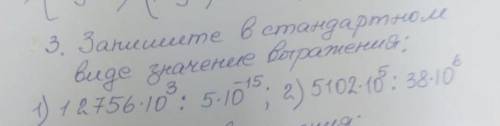 3. Запишите в стандартном
виде значение выражения:
1) 12756·10³ : 5·10⁻¹⁵; 2) 5102·10⁵ : 38·10⁶